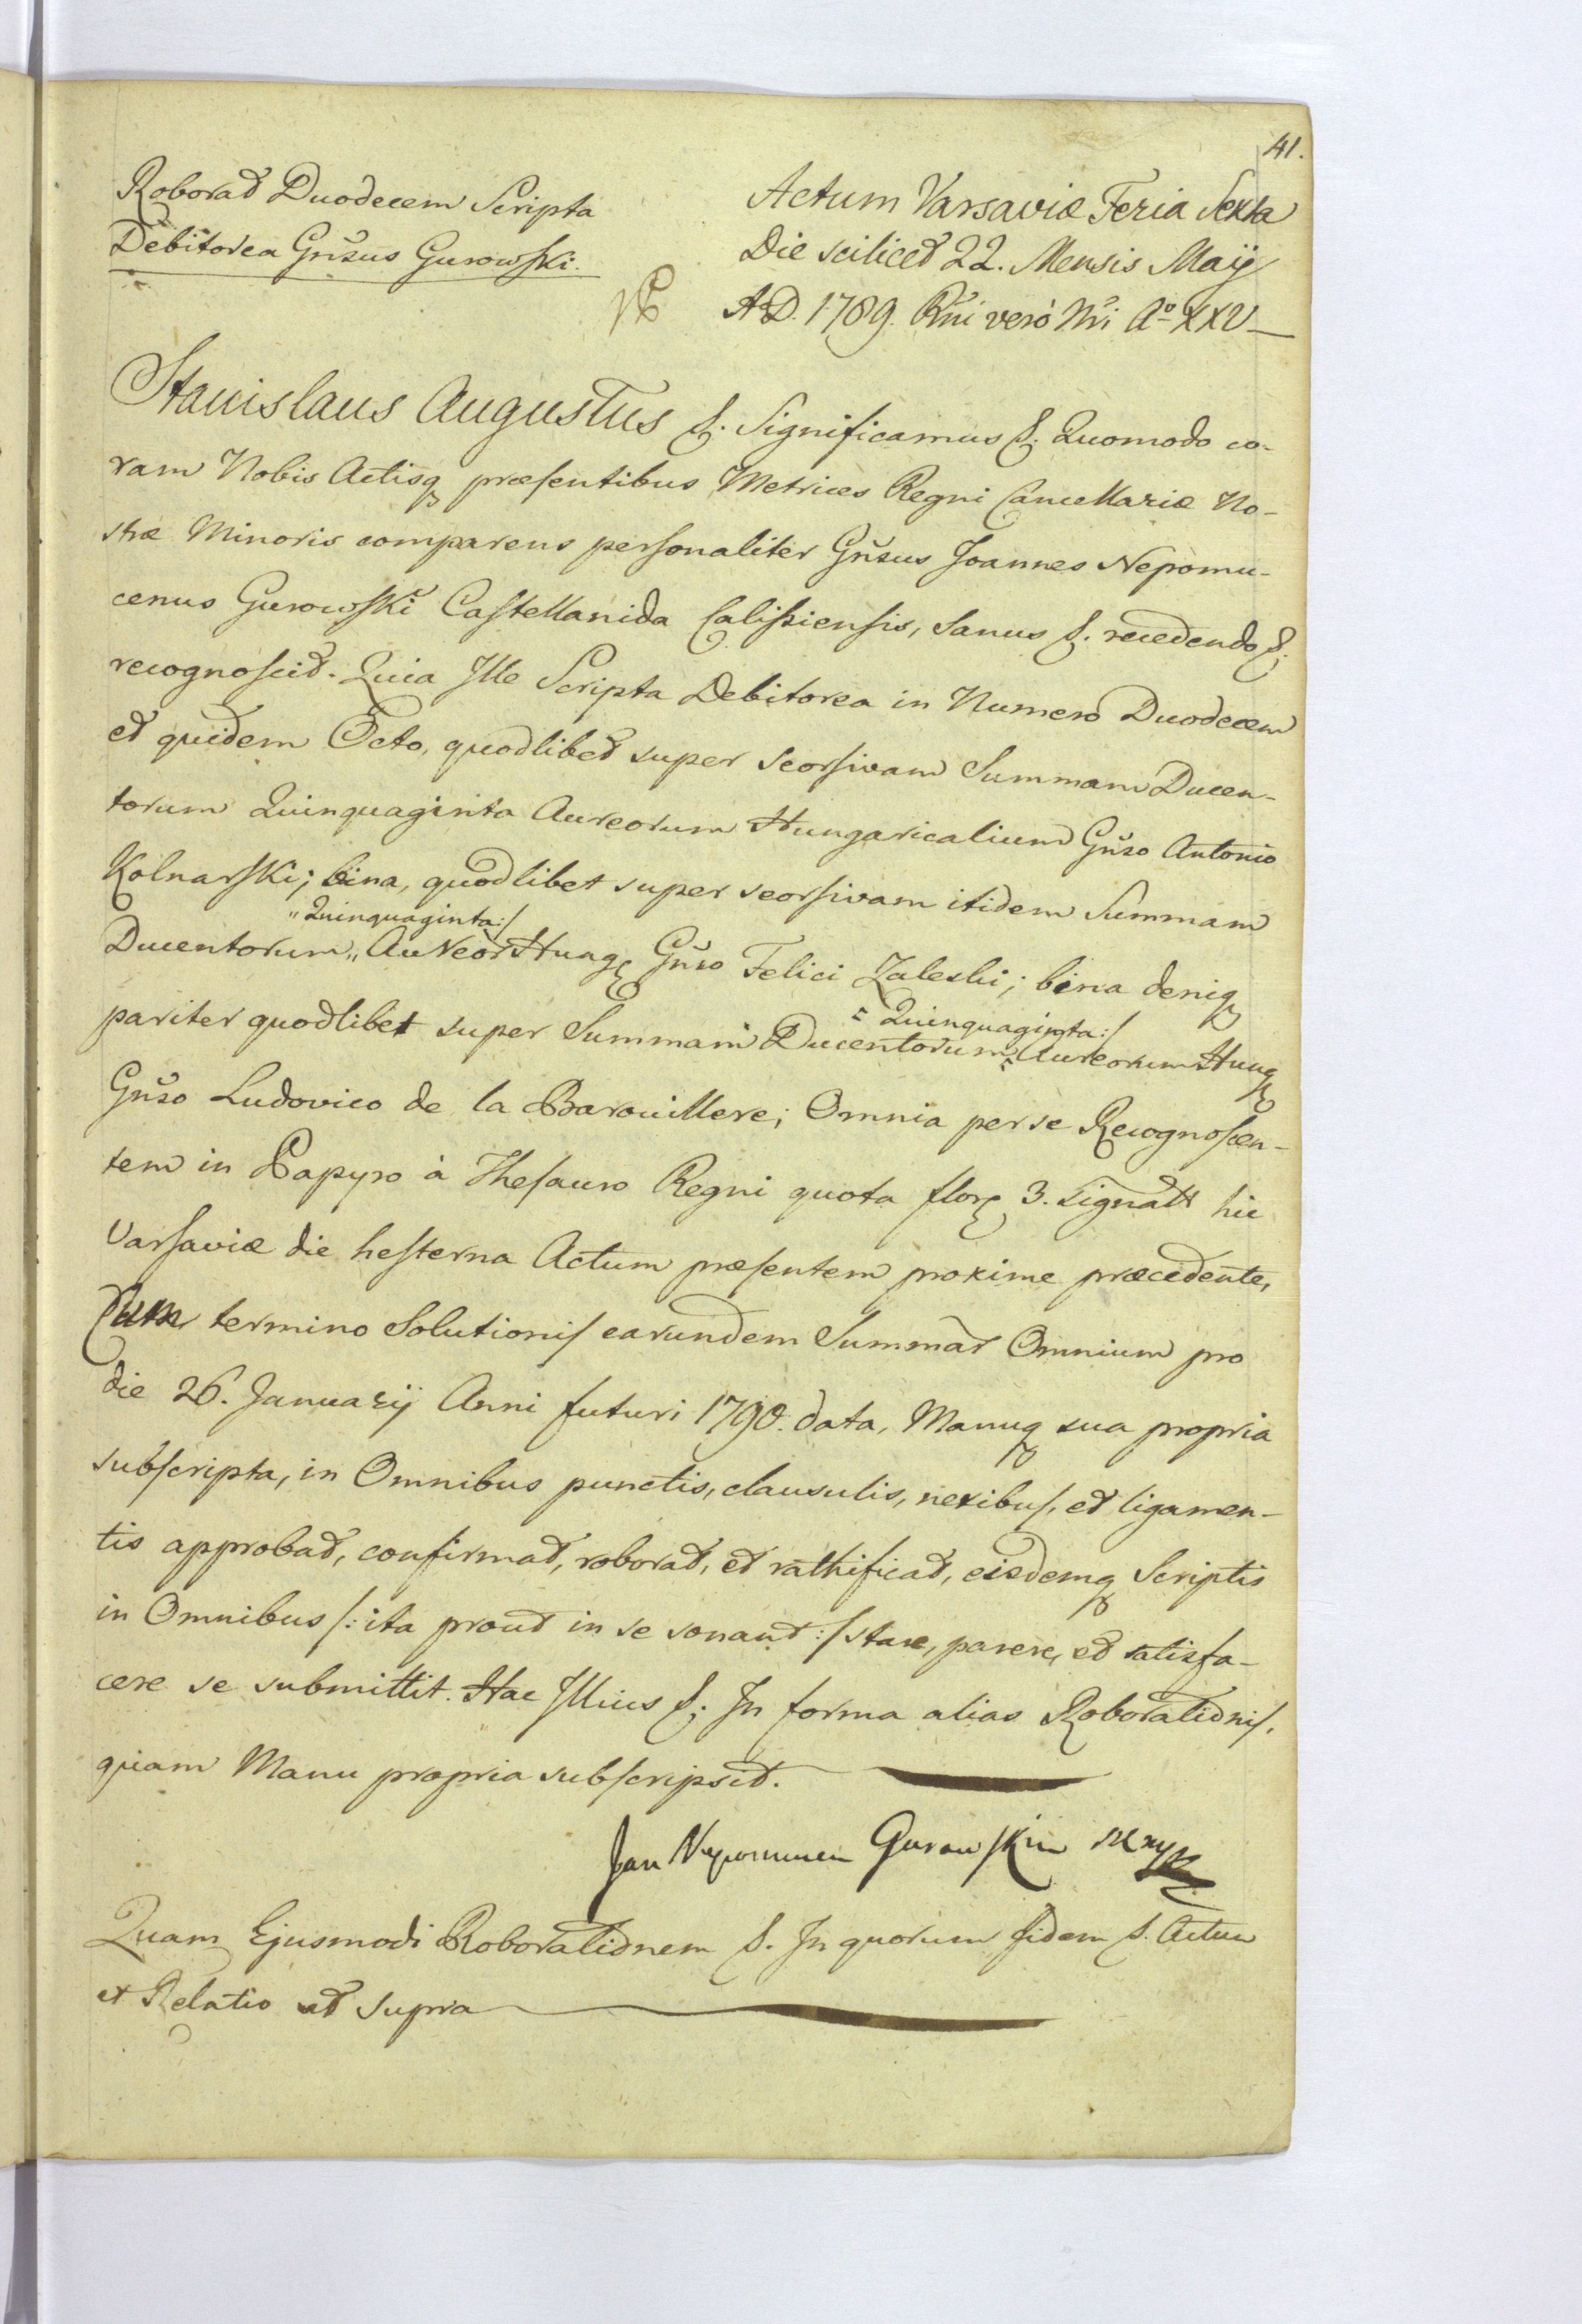 41.
Roborat Duodecem Scripta
Debitorea Gn̄sus Gurowski.
Actum Varsaviæ Feria Sexta
Die scilicet 22. Mensis Maij
A.D. 1789. Rn̄i verò Nr̄i Aº XXV
Stanislaus Augustus &. Significamus &. Quomodo co-
ram Nobis Actisq præsentibus Metrices Regni Cancellariæ No-
stræ Minoris comparens personaliter Gn̄sus Joannes Nepomu-
cenus Gurowski Castellanida Calissiensis, Sanus &. recedendo &.
recognoscit. Quia Ille Scripta Debitorea in Numero Duodecem
et quidem Octo, quodlibet super seorsivam Summam Ducen-
torum Quinquaginta Aureorum Hungaricalium Gn̄so Antonio
Kolnarski; bina, quodlibet super seorsivam itidem Summam
"Quinquaginta:/
Ducentorum,, Aureor Hung Gn̄so Felici Zaleski; bina deniq
= Quinquaginta:/
pariter quodlibet super Summam Ducentorum = Aureorum Hung
Gn̄so Ludovico de la Barouillere; Omnia per se Recognoscen-
tem in Papyro à Thesauro Regni quota flor 3. signatt hic
Varsaviæ die hesterna Actum præsentem proxime præcedente,
Cum termino Solutionis earundem Summar Omnium pro
die 26. Januarij Anni futuri 1790. data, Manuq sua propria
subscripta, in Omnibus punctis, clausulis, nexibus, et ligamen-
tis approbat, confirmat, roborat, et rathificat, eisdemq Scriptis
in Omnibus /: ita prout in se sonant :/ stare, parere, et satisfa-
cere se submittit. Hac Illius &. In forma alias Roborationis,
quam Manu propria subscripsit.
Jan Nepomucen Gurowski
Quam Ejusmodi Roborationem &. In quorum fidem &. Actum
et Relatio ut supra